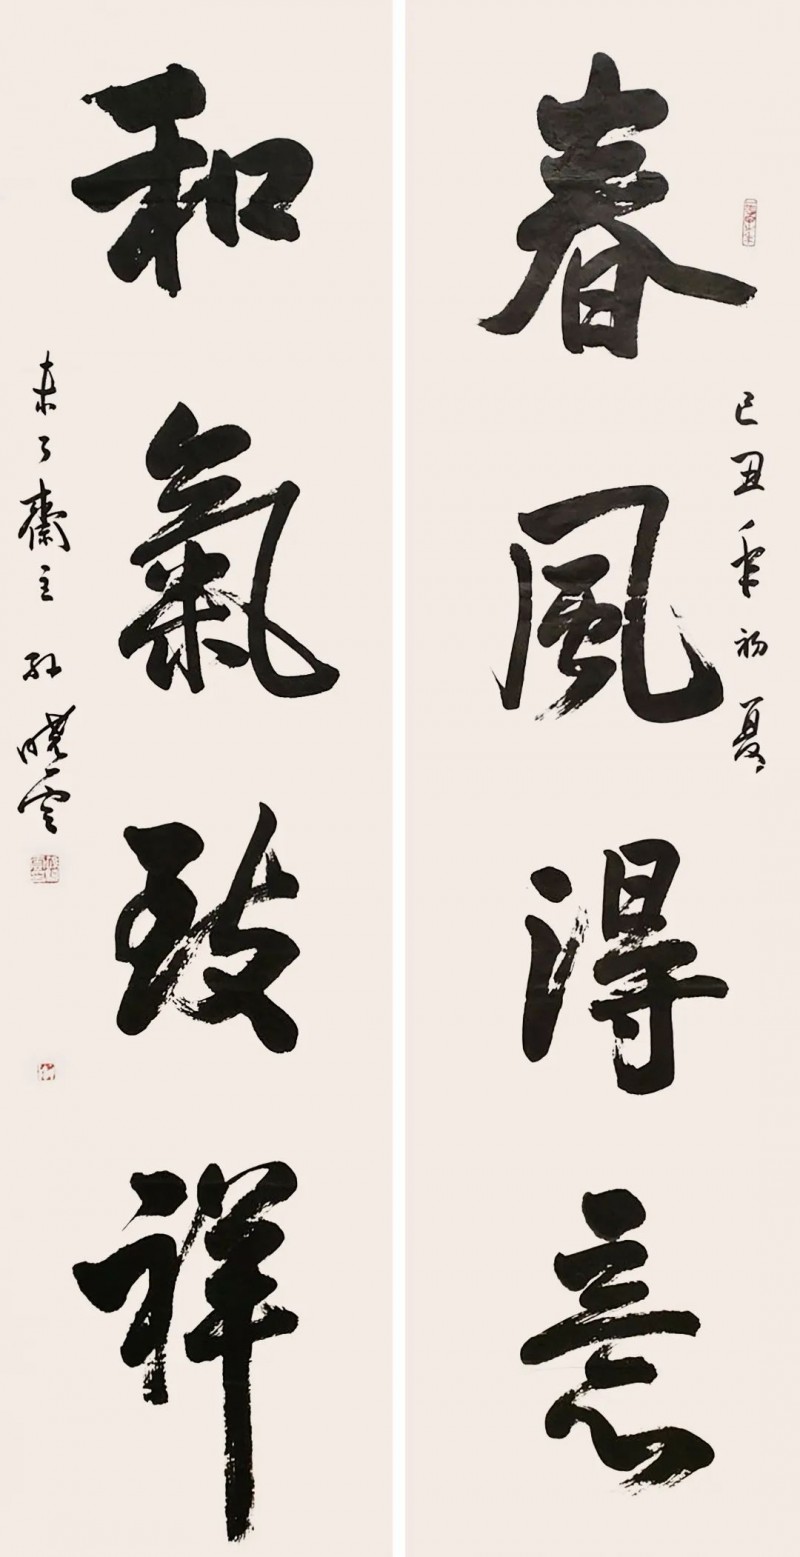 春風得意
己丑年初夏
和氣致祥
未了齋主 孫曉雲